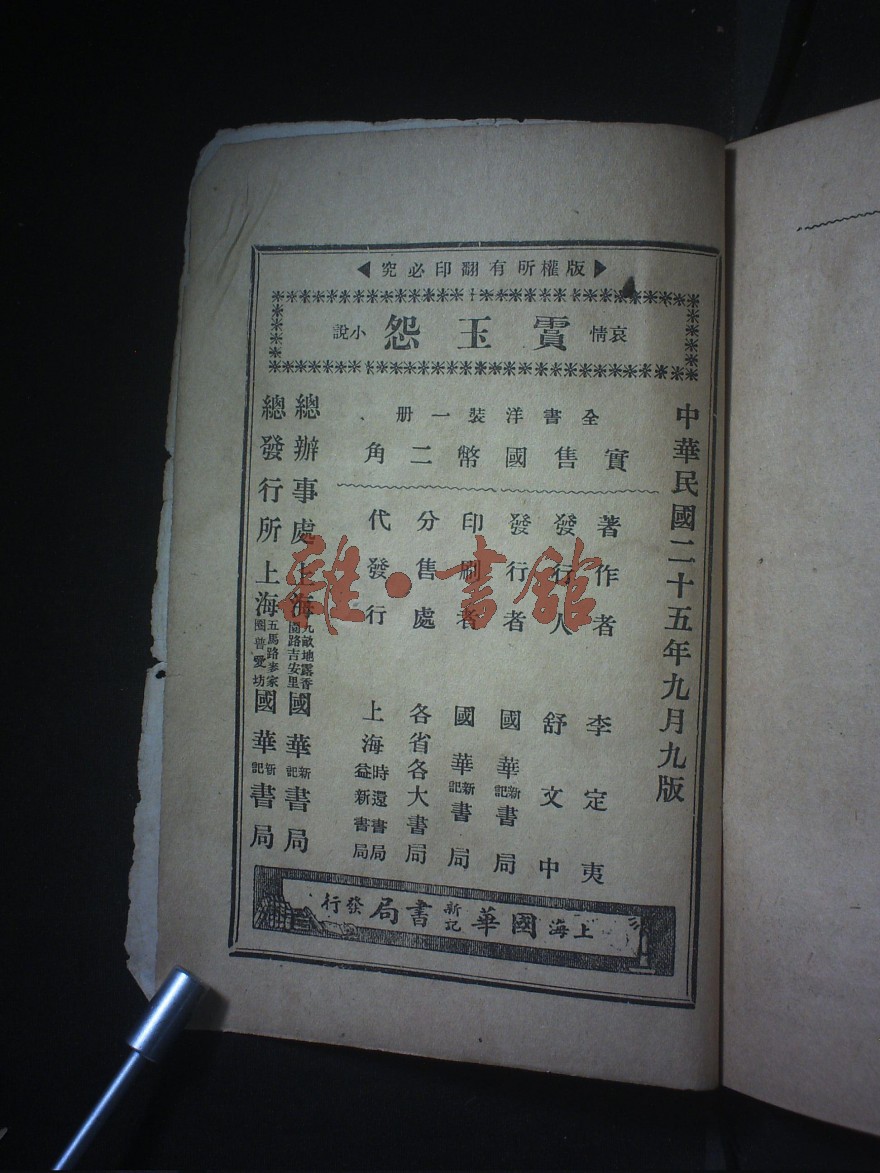 版權所有翻印必究
哀情 霣玉怨 小說
中華民國二十五年九月九版
全書洋裝一册
實售國幣二角
著作者 李定夷
發行人 舒文中
發行者 國華新記書局
印刷者 國華新記書局
分售處 各省各大書局
代發行 上海時還書局 益新書局
總辦事處 上海九畝地露香園路吉安里 國華新記書局
總發行所 上海五馬路麥家圈普愛坊 國華新記書局
上海國華新記書局發行
雜·書館